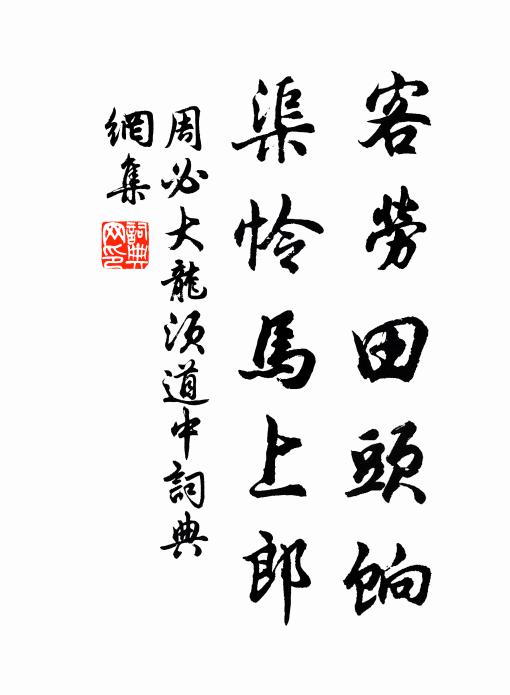 客勞田頭餉
渠怜馬上郎
周必大龍須道中詞典
網集
詞典
网印